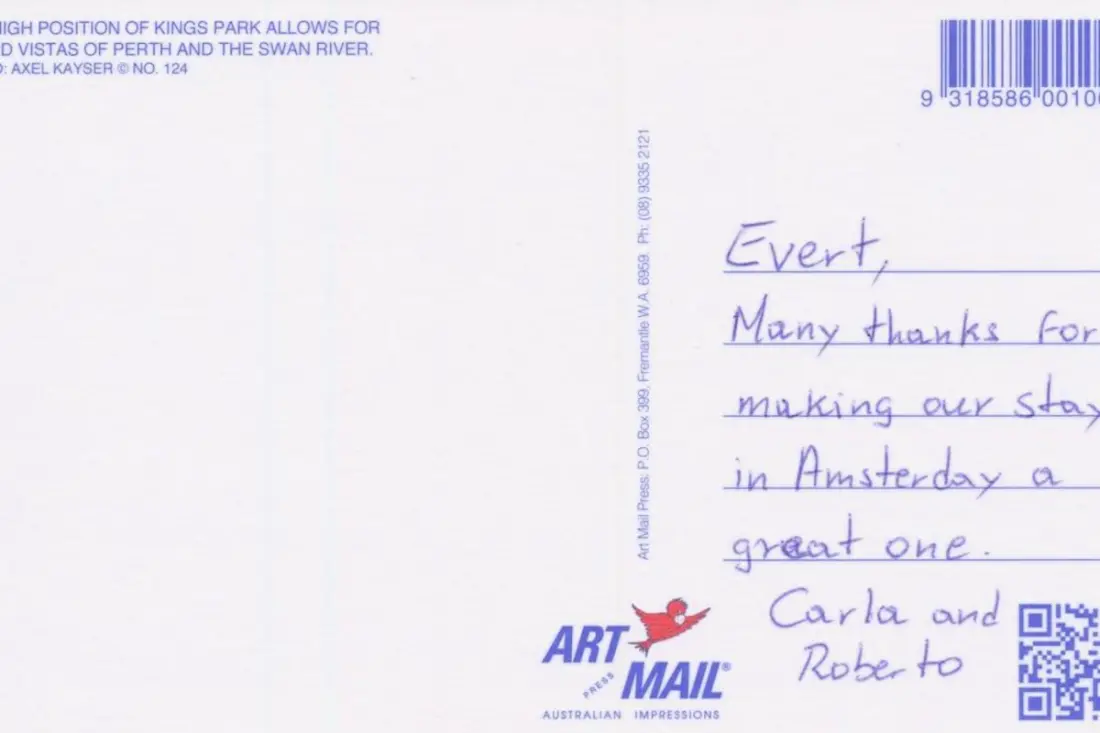 HIGH POSITION OF KINGS PARK ALLOWS FOR
D VISTAS OF PERTH AND THE SWAN RIVER.
: AXEL KAYSER © NO. 124
9 318586 00106
Art Mail Press: P.O. Box 399, Fremantle W.A. 6959. Ph: (08) 9335 2121
Evert,
Many thanks for
making our stay
in Amsterday a
great one.
Carla and
Roberto
ART
PRESS
MAIL®
AUSTRALIAN IMPRESSIONS